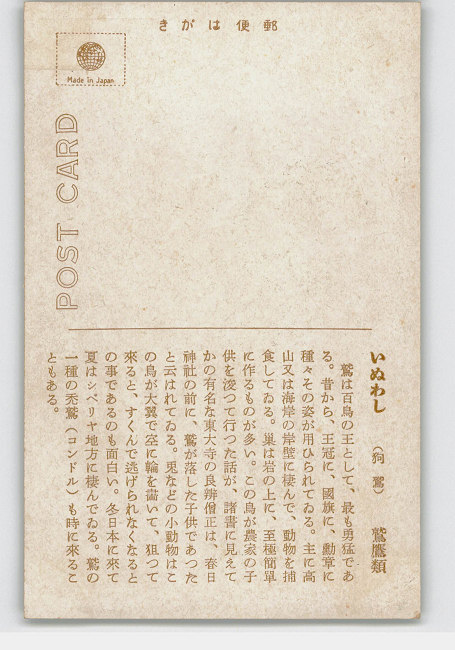 きがは便郵
Made in Japan
POST CARD
いぬわし (狗鷲) 鷲鷹類
鷲は百鳥の王として、最も勇猛であ
る。昔から、王冠に、國旗に、勳章に
種々その姿が用ひられてゐる。主に高
山又は海岸の岸壁に棲んで、動物を捕
食してゐる。巣は岩の上に、至極簡單
に作るものが多い。この鳥が農家の子
供を浚つて行つた話が、諸書に見えて
かの有名な東大寺の良辨僧正は、春日
神社の前に、鷲が落した子供であつた
と云はれてゐる。兎などの小動物はこ
の鳥が大翼で空に輪を畵いて、狙つて
來ると、すくんで逃げられなくなると
の事であるのも面白い。冬日本に來て
夏はシベリヤ地方に棲んでゐる。鷲の
一種の禿鷲(コンドル)も時に來るこ
ともある。